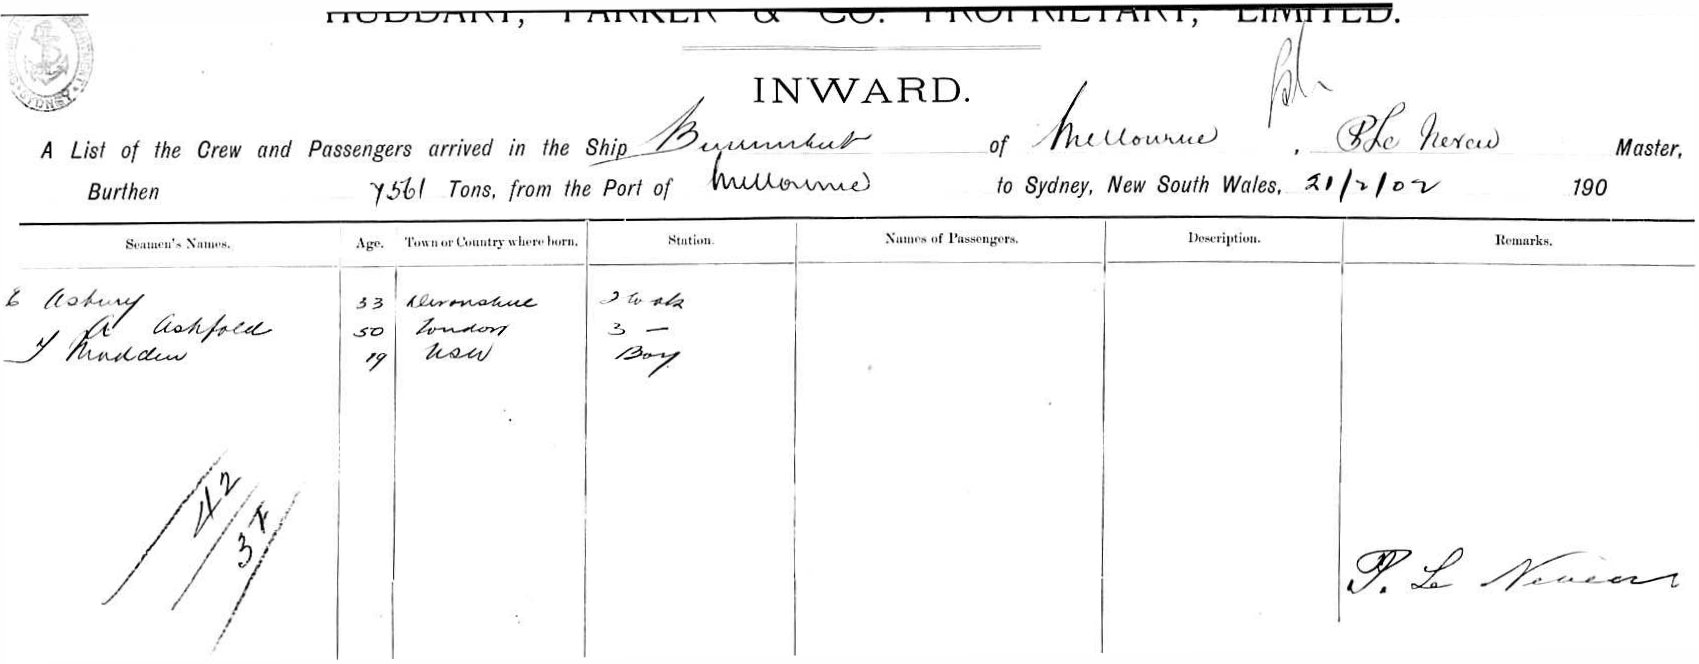 HUDDART, PARKER & CO. PROPRIETARY, LIMITED.
SYDNEY
INWARD.
A List of the Crew and Passengers arrived in the Ship of Melbourne, P Le Neveu Master,
Burthen 7561 Tons, from the Port of Melbourne to Sydney, New South Wales, 21/2/02 190
Seamen's Names. Age. Town or Country where born. Station. Names of Passengers. Description. Remarks.
E Asbury 33 Devonshire 2 Cook
A Ashfold 50 London 3 —
T Madden 19 NSW Boy
42
37
P. Le Neveu